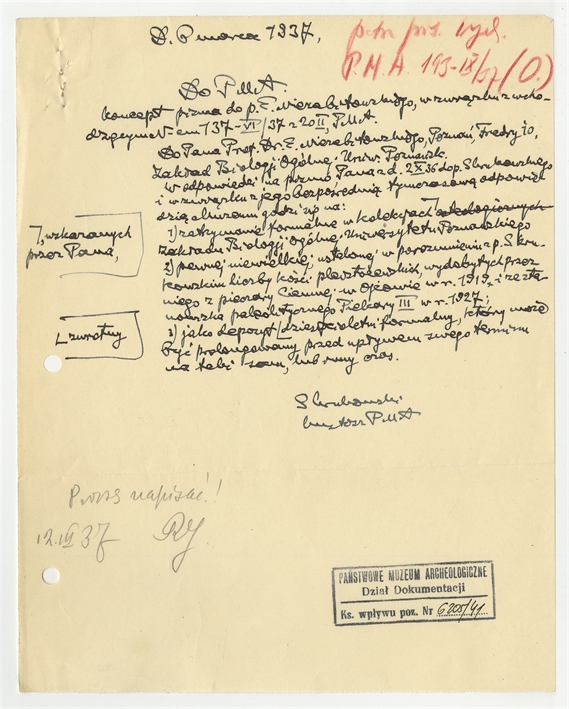 D. 8 marca 1937,
P.M.A. 193-IX/37 (O.)
Do PMA.
Koncept pisma do p. E. Niezabitowskiego, w związku z wcho-
dzącym N-em 137-VI/37 z 20 II, PMA.
Do Pana Prof. Dr. E. Niezabitowskiego, Poznań, Fredry 10,
Zakład Biologji Ogólnej, Uniw. Poznańsk.
W odpowiedzi na pismo Pana z d. 2 X 36 do p. S. Krukowskiego
i w związku z jego bezpośrednią tymczasową odpowie-
dzią a Muzeum godzi się na:
1) zatrzymanie formalne w kolekcjach
Zakładu Biologji Ogólnej, Uniwersytetu Poznańskiego
2) pewnej niewielkiej, ustalonej w porozumieniu z p. S. Kru-
kowskim liczby kości plejstoceńskich, wydobytych przez
niego z pieczary Ciemnej w Ojcowie w r. 1919, i ze sta-
nowiska paleolitycznego Piekary III w r. 1927;
3) jako depozyt dziesięcioletni formalny, który może
być prolongowany przed upływem swego terminu
na taki sam, lub inny czas.
7, wskazanych
przez Pana,
L zwrotny
S Krukowski
kustosz PMA
Proszę napisać!
12.III 37 RJ
PAŃSTWOWE MUZEUM ARCHEOLOGICZNE
Dział Dokumentacji
Ks. wpływu poz. Nr 6205/41